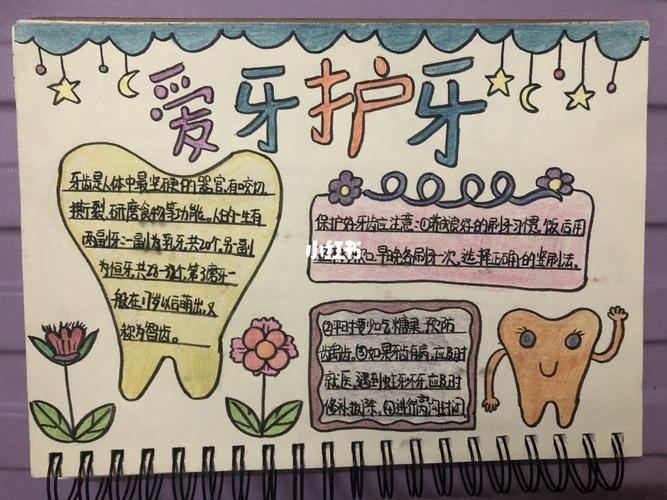 爱牙护牙
牙齿是人体中最坚硬的器官,有咬切、
撕裂、研磨食物等功能。人的一生有
两副牙:一副为乳牙共20个,另一副
为恒牙共28-32个,第3磨牙一
般在17岁以后萌出,又
称为智齿。
保护好牙齿应注意:①养成良好的刷牙习惯,饭后用
漱口,早晚各刷牙一次,选择正确的竖刷法。
小红书
②平时要少吃糖果,预防
龋齿。③如果牙齿有病,应及时
就医。遇到蛀牙坏牙,应及时
修补拔除。④进行窝沟封闭。